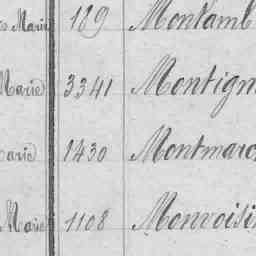 Marie 189 Montamb
Marie 3341 Montign
Marie 1430 Montmaro
Marie 1108 Monvoisi